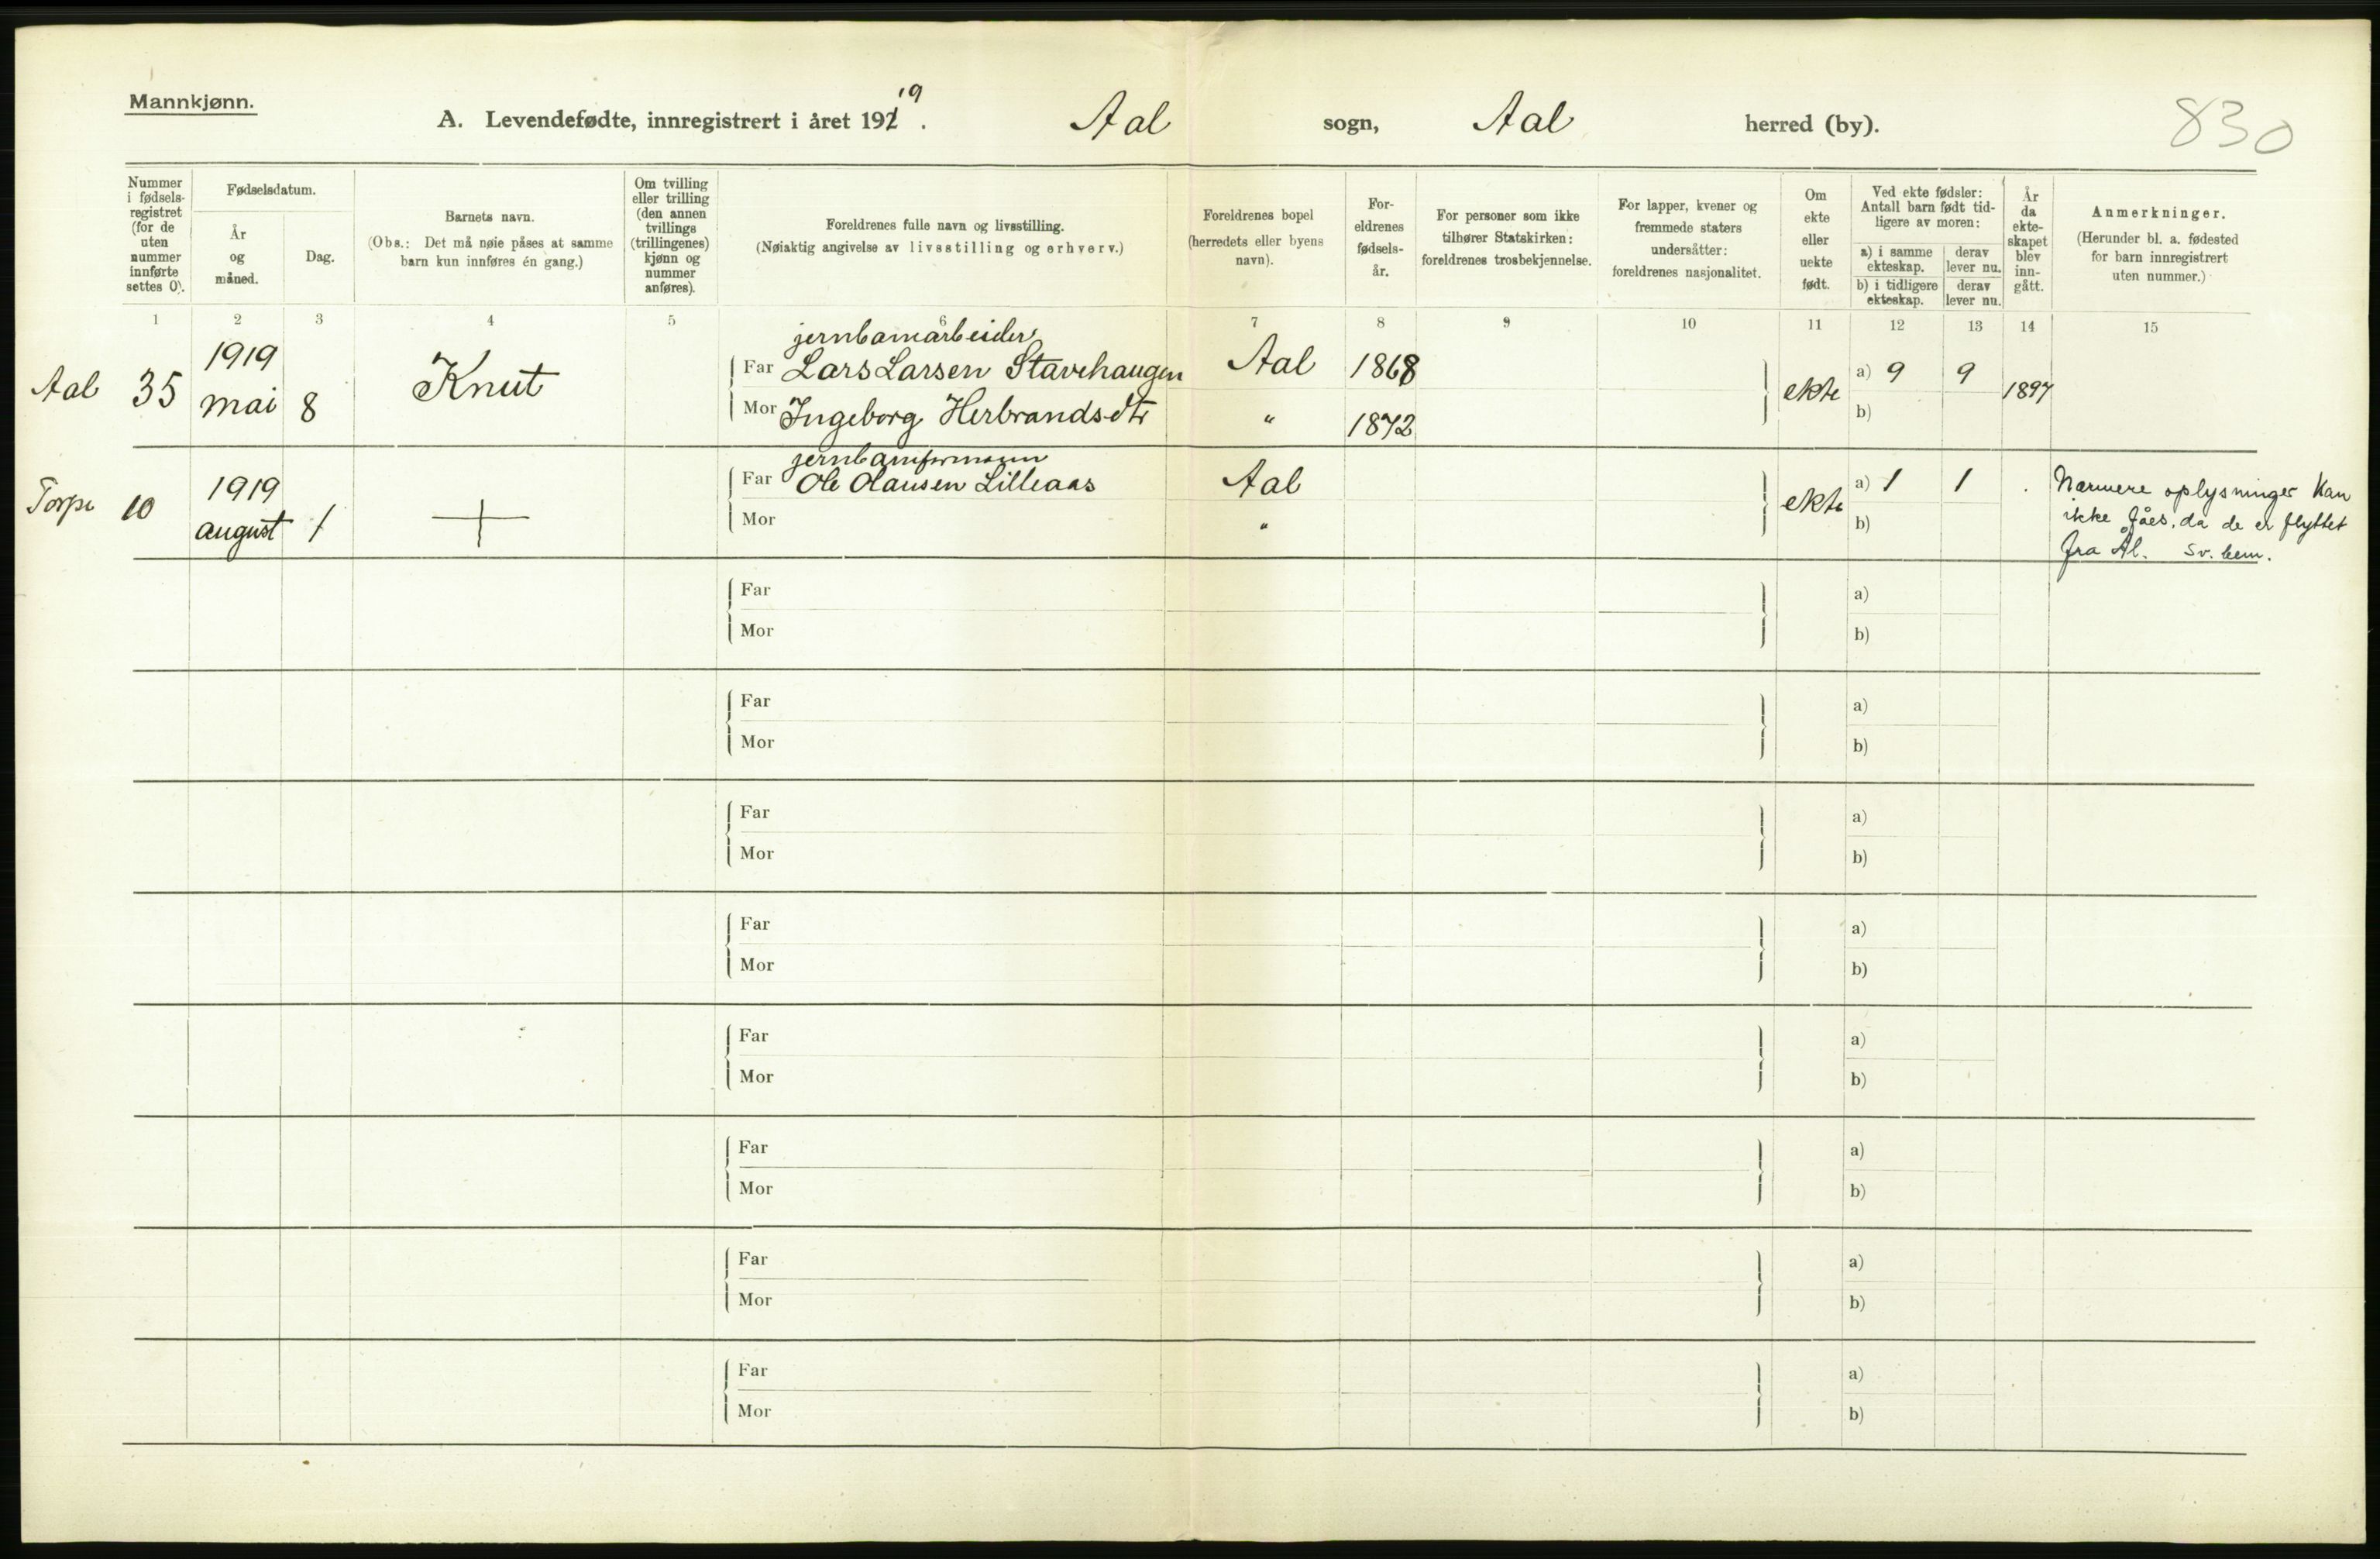 Mannkjønn.
A. Levendefødte, innregistrert i året 1919. Aal sogn, Aal herred (by). 830
Nummer i fødselsregistret (for de uten nummer innførte settes 0).
Fødselsdatum.
År og måned.
Dag.
Barnets navn.
(Obs.: Det må nøie påses at samme barn kun innføres én gang.)
Om tvilling eller trilling (den annen tvillings (trillingenes) kjønn og nummer anføres).
Foreldrenes fulle navn og livsstilling.
(Nøiaktig angivelse av livsstilling og erhverv.)
Foreldrenes bopel (herredets eller byens navn).
Foreldrenes fødselsår.
For personer som ikke tilhører Statskirken: foreldrenes trosbekjennelse.
For lapper, kvener og fremmede staters undersåtter: foreldrenes nasjonalitet.
Om ekte eller uekte født.
Ved ekte fødsler: Antall barn født tidligere av moren:
a) i samme ekteskap. derav lever nu.
b) i tidligere ekteskap. derav lever nu.
År da ekteskapet blev inngått.
Anmerkninger.
(Herunder bl. a. fødested for barn innregistrert uten nummer.)
1 2 3 4 5 6 7 8 9 10 11 12 13 14 15
jernbanearbeider
Aal 35 1919 mai 8 Knut
Far Lars Larsen Stavehaugen Aal 1868 ekte a) 9 9 1897
Mor Ingeborg Herbrandsdtr " 1872 b)
jernbaneformann
Torpe 10 1919 august 1 +
Far Ole Olausen Lilleaas Aal ekte a) 1 1 .
Mor " b)
Nærmere oplysninger kan
ikke fåes, da de er flyttet
fra Ål. Sv. bem.
Far a)
Mor b)
Far a)
Mor b)
Far a)
Mor b)
Far a)
Mor b)
Far a)
Mor b)
Far a)
Mor b)
Far a)
Mor b)
Far a)
Mor b)